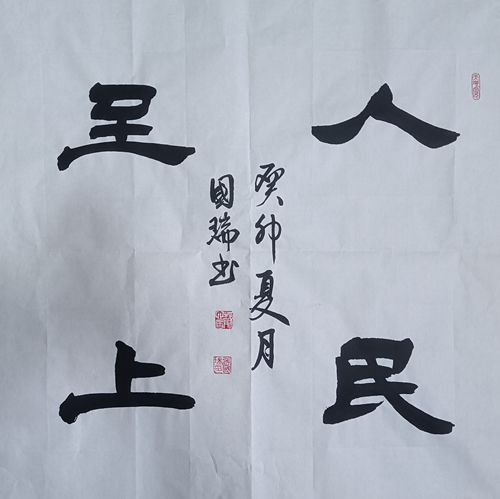 人民
至上
癸卯夏月
國瑞书